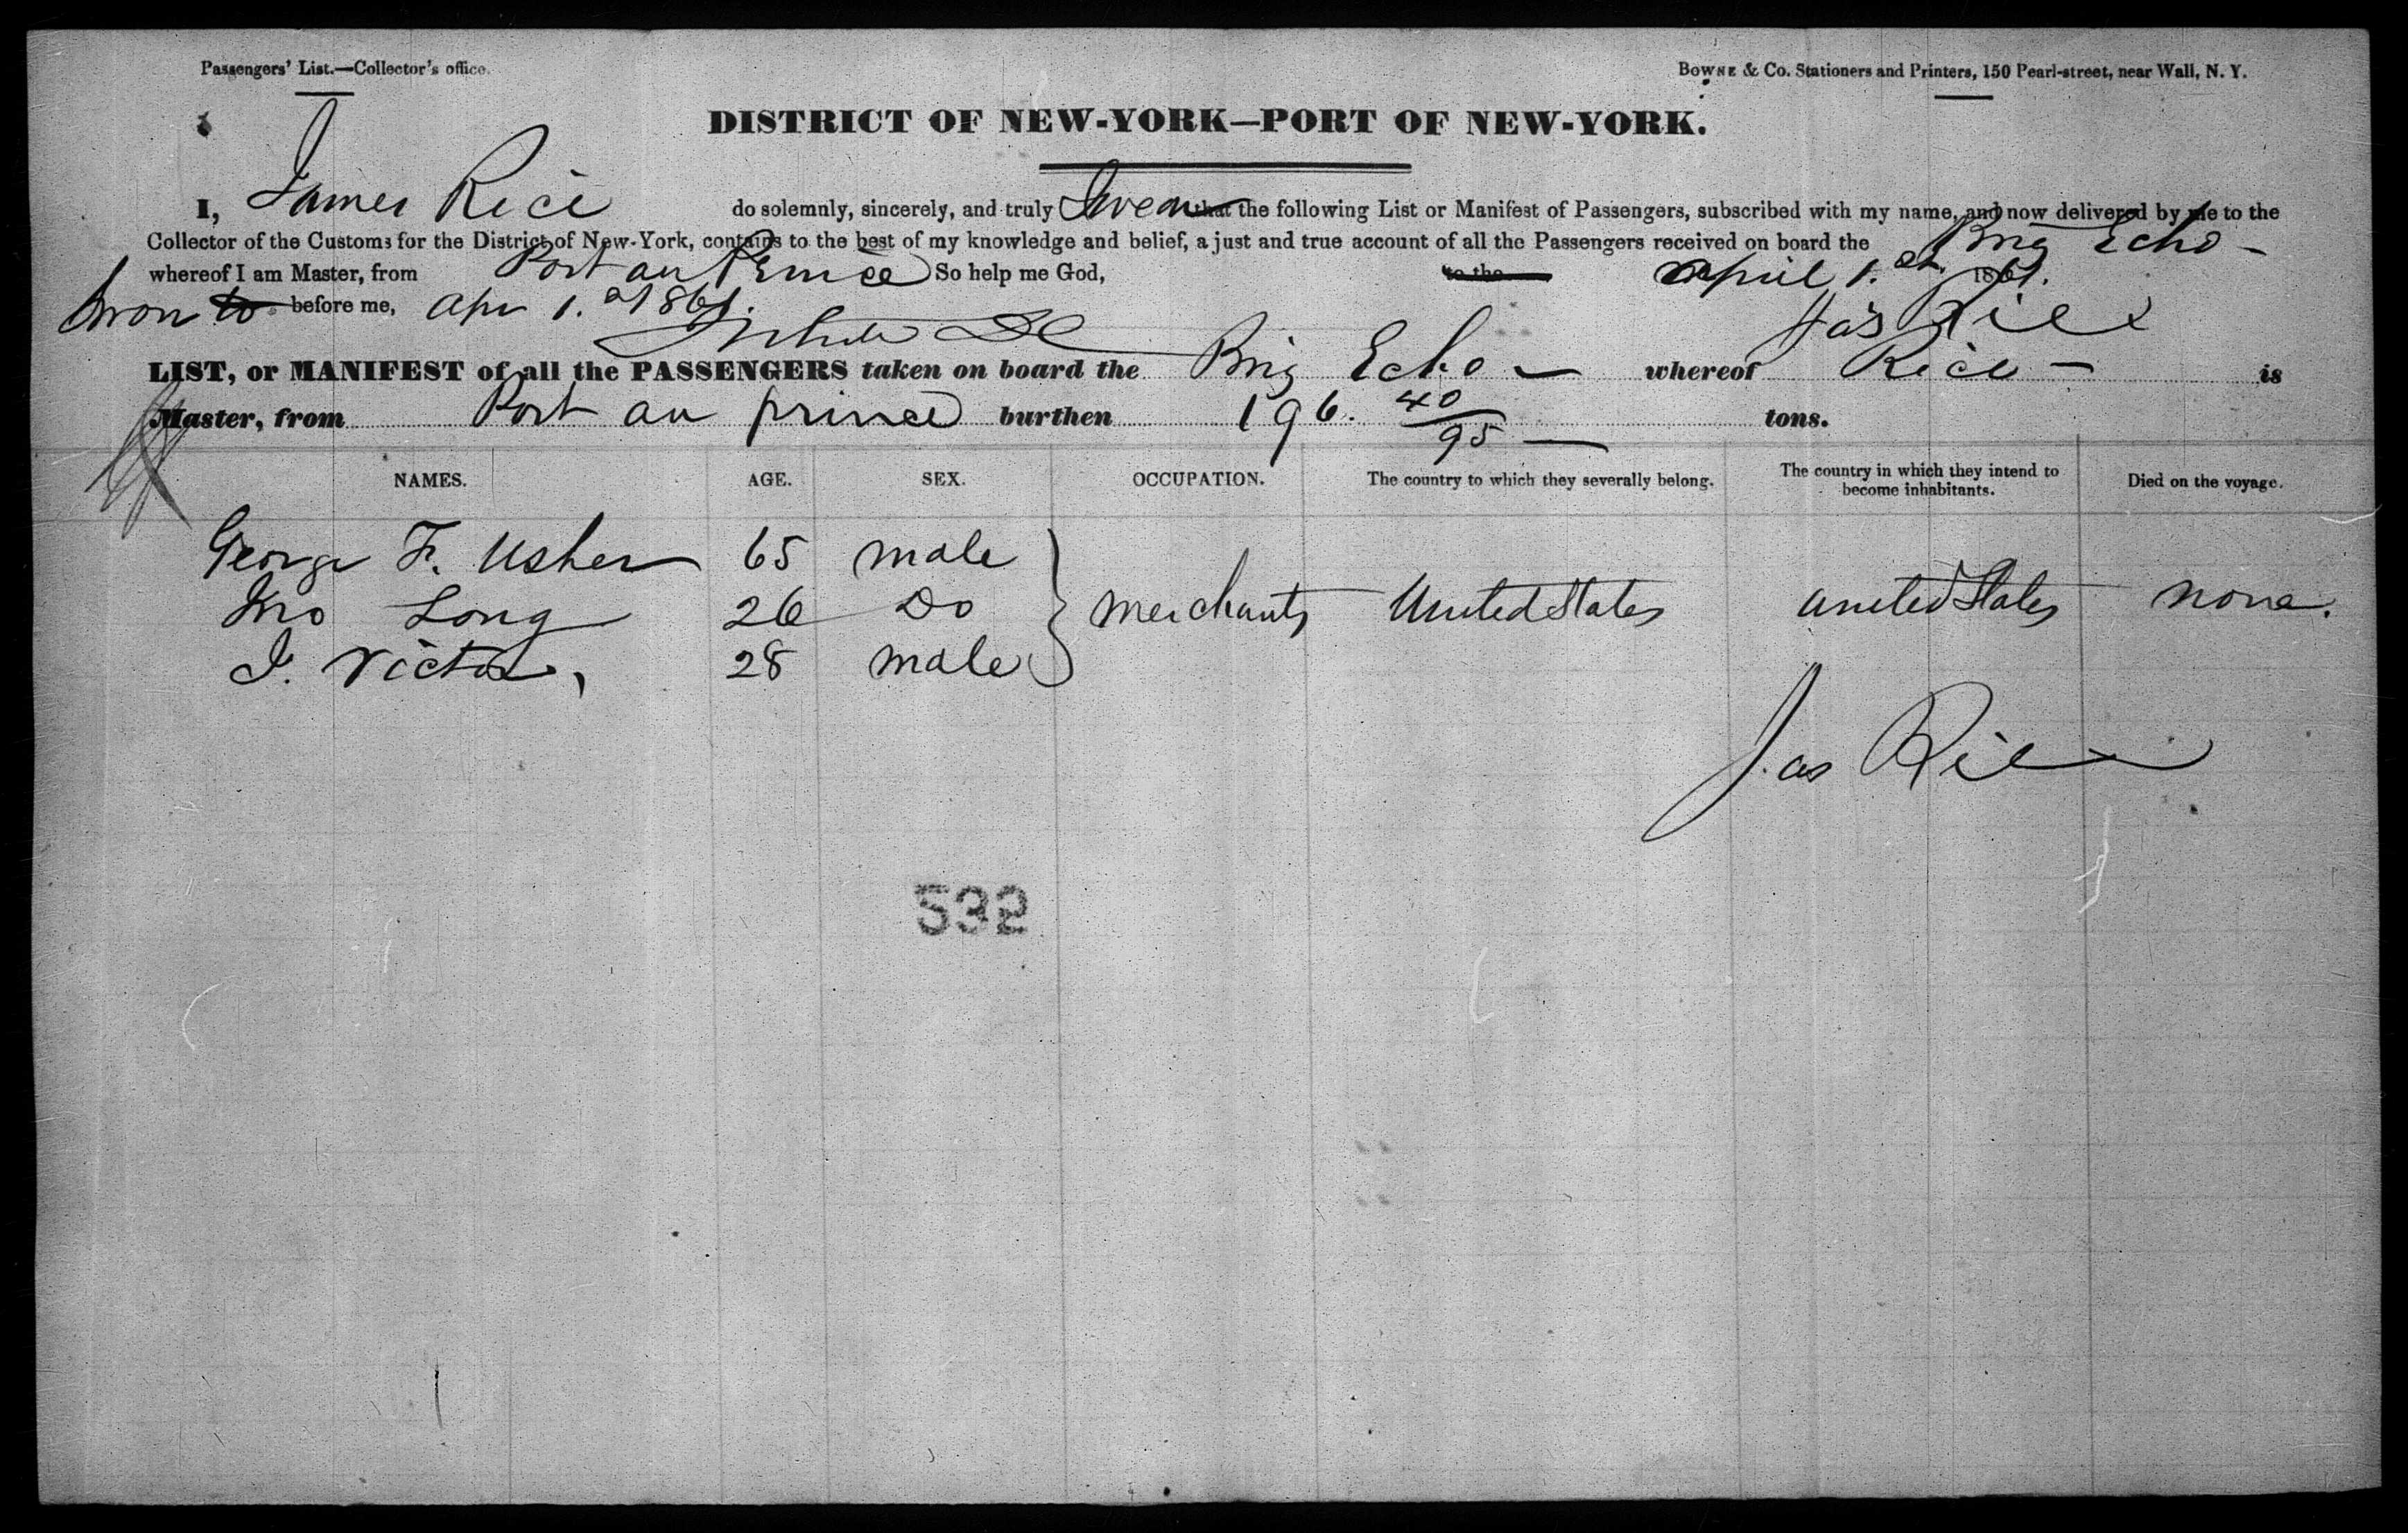 Passengers' List.—Collector's office.
Bowne & Co. Stationers and Printers, 150 Pearl-street, near Wall, N. Y.
DISTRICT OF NEW-YORK—PORT OF NEW-YORK.
I, James Rice do solemnly, sincerely, and truly Swear that the following List or Manifest of Passengers, subscribed with my name, and now delivered by me to the
Collector of the Customs for the District of New-York, contains to the best of my knowledge and belief, a just and true account of all the Passengers received on board the Brig Echo
whereof I am Master, from Port au Prince So help me God, to the April 1.st 1861.
Sworn to before me, Apr 1.st 1861. Jas Rice
LIST, or MANIFEST of all the PASSENGERS taken on board the Brig Echo — whereof Rice — is
Master, from Port au prince burthen 196. 40/95 — tons.
NAMES. AGE. SEX. OCCUPATION. The country to which they severally belong. The country in which they intend to become inhabitants. Died on the voyage.
George F. Usher 65 male
Jno Long 26 Do merchants United States United States none.
J. Victor, 28 male
Jas Rice
532